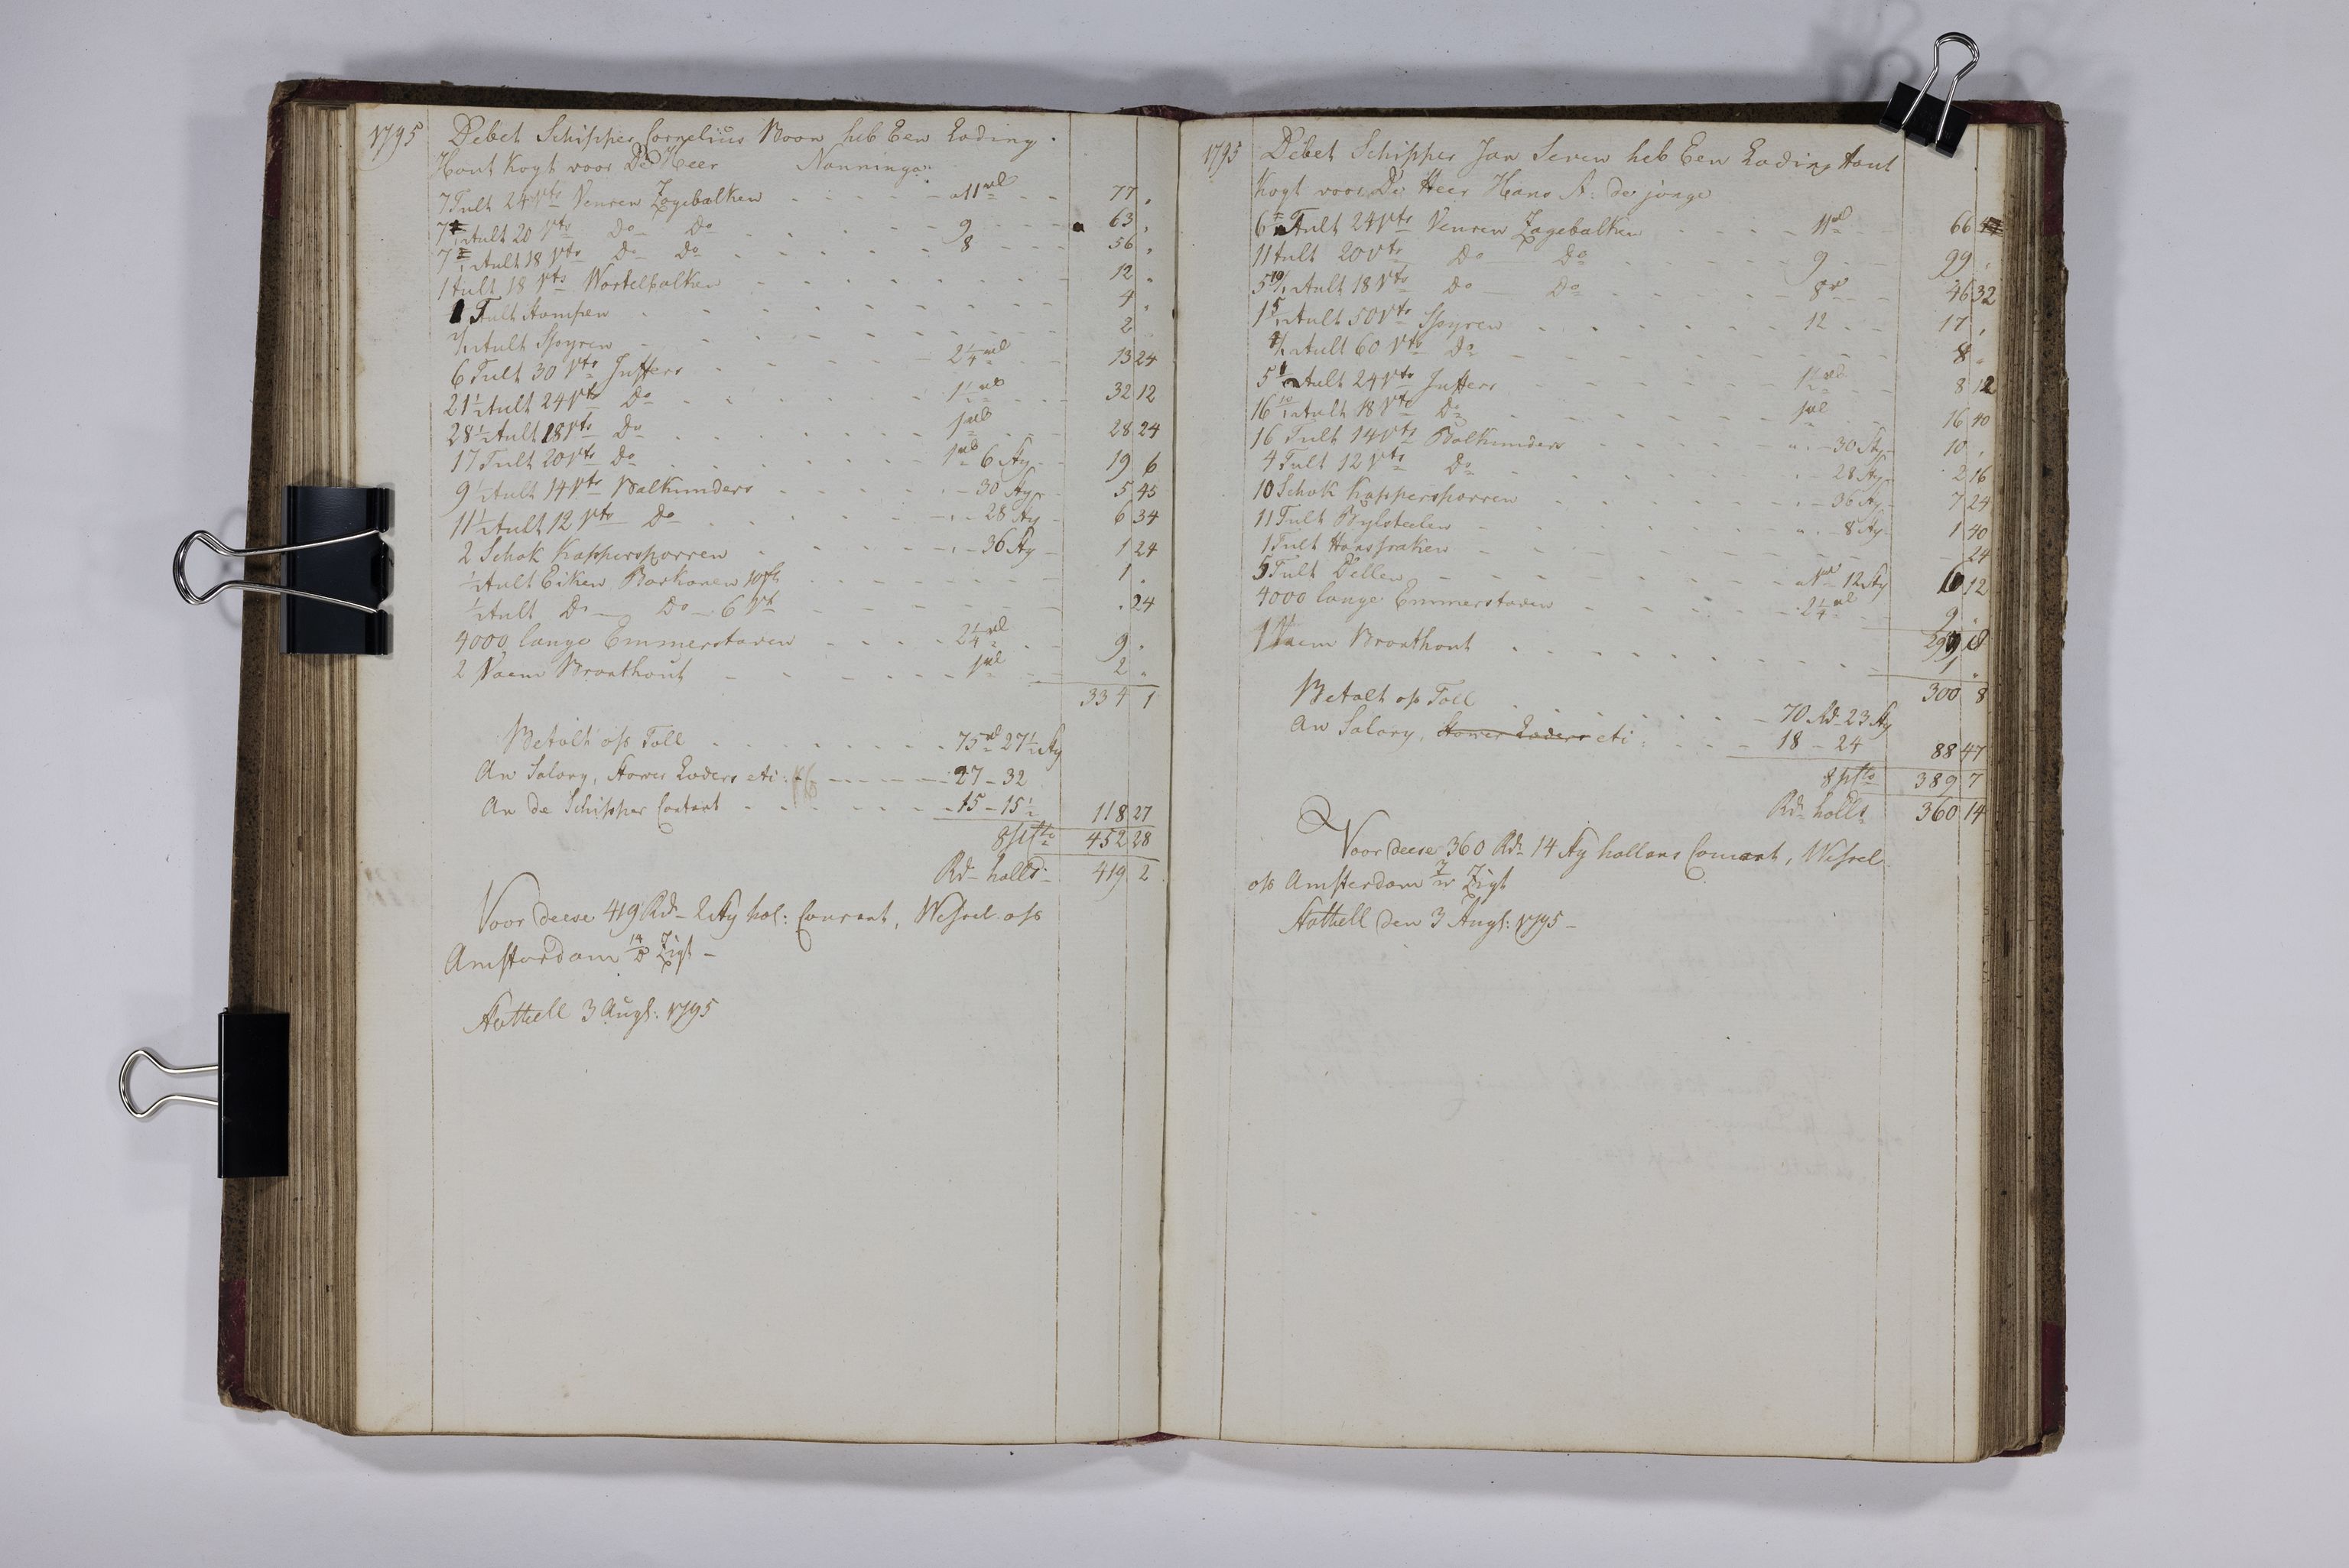 1795 Debet Schipper Cornelius Boon heb Een Lading
Hout Kogt voor De Heer Nanninga
7 Tult 24 vts Veuren Zagebalken a 11 rd 77 .
7 Tult 20 vts Do Do 9 63 .
7 Tult 18 vts Do Do 8 56 .
1 Tult 18 vts Wortelbalken 12 .
1 Tult Kampen 4 .
Tult Spyren 2
6 Tult 30 vts Juffers 2 1/4 rd 13 24
21 1/2 Tult 24 vts Do 1 1/2 rd 32 12
28 1/2 Tult 18 vts Do 1 rd 28 24
17 Tult 20 vts Do 1 rd 6 sty 19 6
9 1/2 Tult 14 vts Balkunders 30 sty 5 45
11 1/2 Tult 12 vts Do 28 sty 6 34
2 Schok Kappersporren 36 sty 1 24
1/2 Tult Eiken Barkonen 10 vt 1 .
1/2 Tult Do Do 6 vt . 24
4000 lange Emmerstaven 2 1/4 rd 9 .
2 Vaem Branthout 1 rd 2 .
334 1
Betalt op Toll 75 rd 27 1/2 sty
An Salary, Stower Laders etc: 27 - 32
An de Schipper Contant 15 - 15 1/2 118 27
8 pcto 452 28
Rd holls 419 2
Voor deese 419 Rd 2 sty hol: Courant, Wessel op
Amsterdam 14 D Zigt
3 Augt: 1795
1795 Debet Schipper Jan Seven heb Een Lading Hout
Kogt voor De Heer Hans A: de jonge
6 Tult 24 vts Veuren Zagebalken 11 rd 66
11 Tult 20 vts Do Do 9 99 .
5 10/12 Tult 18 vts Do Do 8 rd 46 32
1 5/12 Tult 50 vts Spyren 12 17 .
Tult 60 vts Do 8 .
5 1/2 Tult 24 vts Juffers 1 1/2 rd 8 12
16 10/12 Tult 18 vts Do 1 rd 16 40
16 Tult 14 vts Balkunders 30 sty 10 .
4 Tult 12 vts Do 28 sty 2 16
10 Schok Kappersporren 36 sty 7 24
11 Tult Bylsteelen 8 sty 1 40
1 Tult Hansspaken 24
5 Tult Dellen a 1 rd 12 sty 6 12
4000 lange Emmerstaven 2 1/4 rd 9 .
299 8
1 Vaem Branthout 1 .
300 8
Betalt op Toll 70 Rd 23 sty
An Salary, Stower Laders etc: 18 - 24 88 47
8 pcto 389 7
Rd holls 360 14
Voor deese 360 Rd 14 sty hollans Courant, Wessel
op Amsterdam Zigt
den 3 Augt: 1795